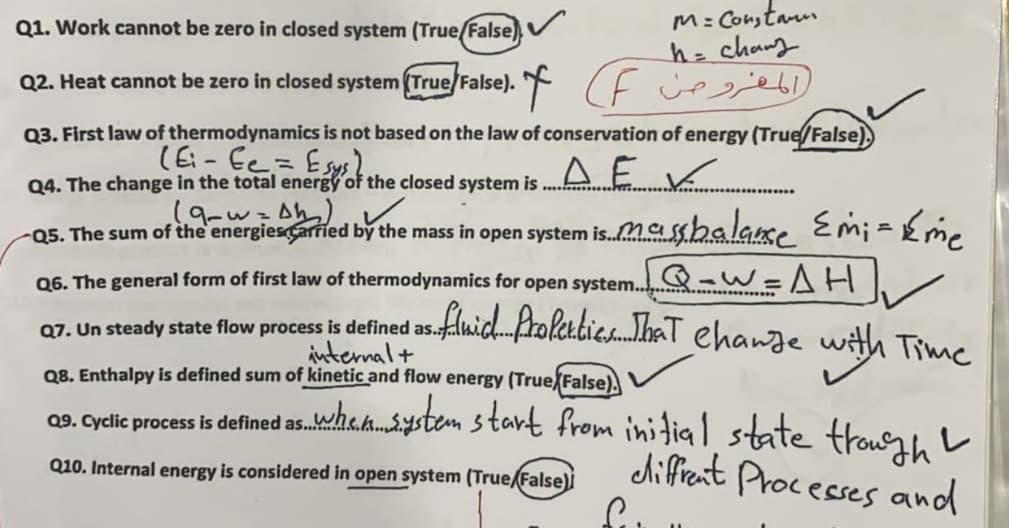 m = Constant
Q1. Work cannot be zero in closed system (True/False). ✓
h = chang
Q2. Heat cannot be zero in closed system (True/False). ✗ (المفروض F)
Q3. First law of thermodynamics is not based on the law of conservation of energy (True/False). ✓
(Ei - Ee = Esys)
Q4. The change in the total energy of the closed system is ....ΔE....✓..............
(q-w = Δh) ✓
Q5. The sum of the energies carried by the mass in open system is..mass balance Σṁi = Σṁe
Q6. The general form of first law of thermodynamics for open system... Q - W = ΔH ✓
Q7. Un steady state flow process is defined as..fluid...Properties...That change with Time ✓
internal +
Q8. Enthalpy is defined sum of kinetic and flow energy (True/False). ✓
Q9. Cyclic process is defined as...when...system start from initial state through ✓
diffrent Processes and
Q10. Internal energy is considered in open system (True/False)